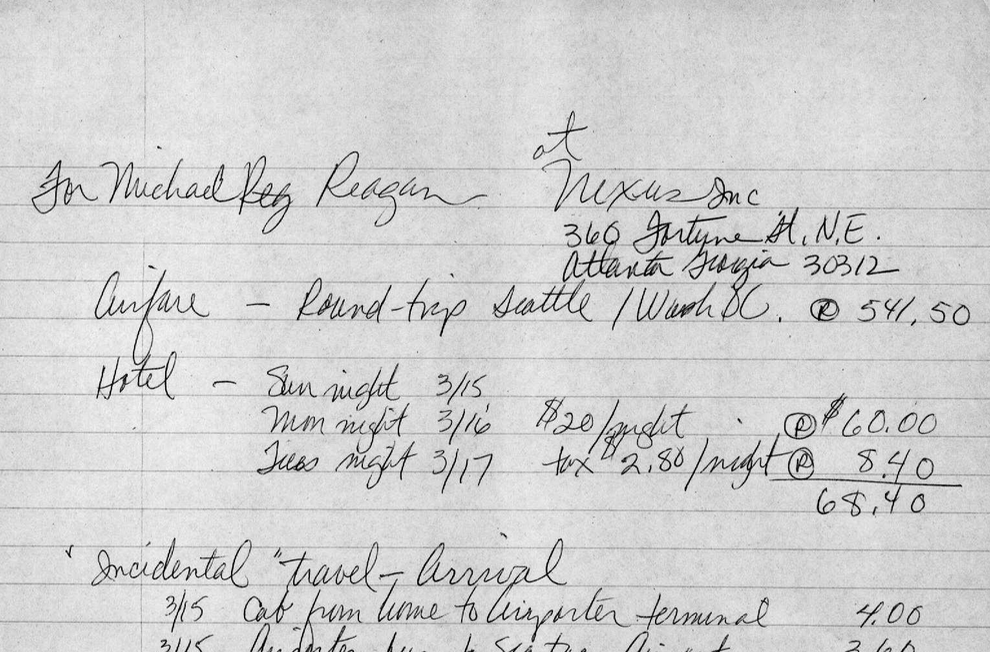 at
For Michael Reg Reagan Nexus Inc
360 Fortune St, N.E.
Atlanta Georgia 30312
Airfare — Round-trip Seattle / Wash DC. Ⓡ 541.50
Hotel — Sun night 3/15
Mon night 3/16 $20/night Ⓡ $60.00
Tues night 3/17 tax $2.80/night Ⓡ 8.40
68.40
"Incidental" travel — Arrival
3/15 Cab from home to Airporter terminal 4.00
3/15 Airporter bus to Seatac Airport 3.60